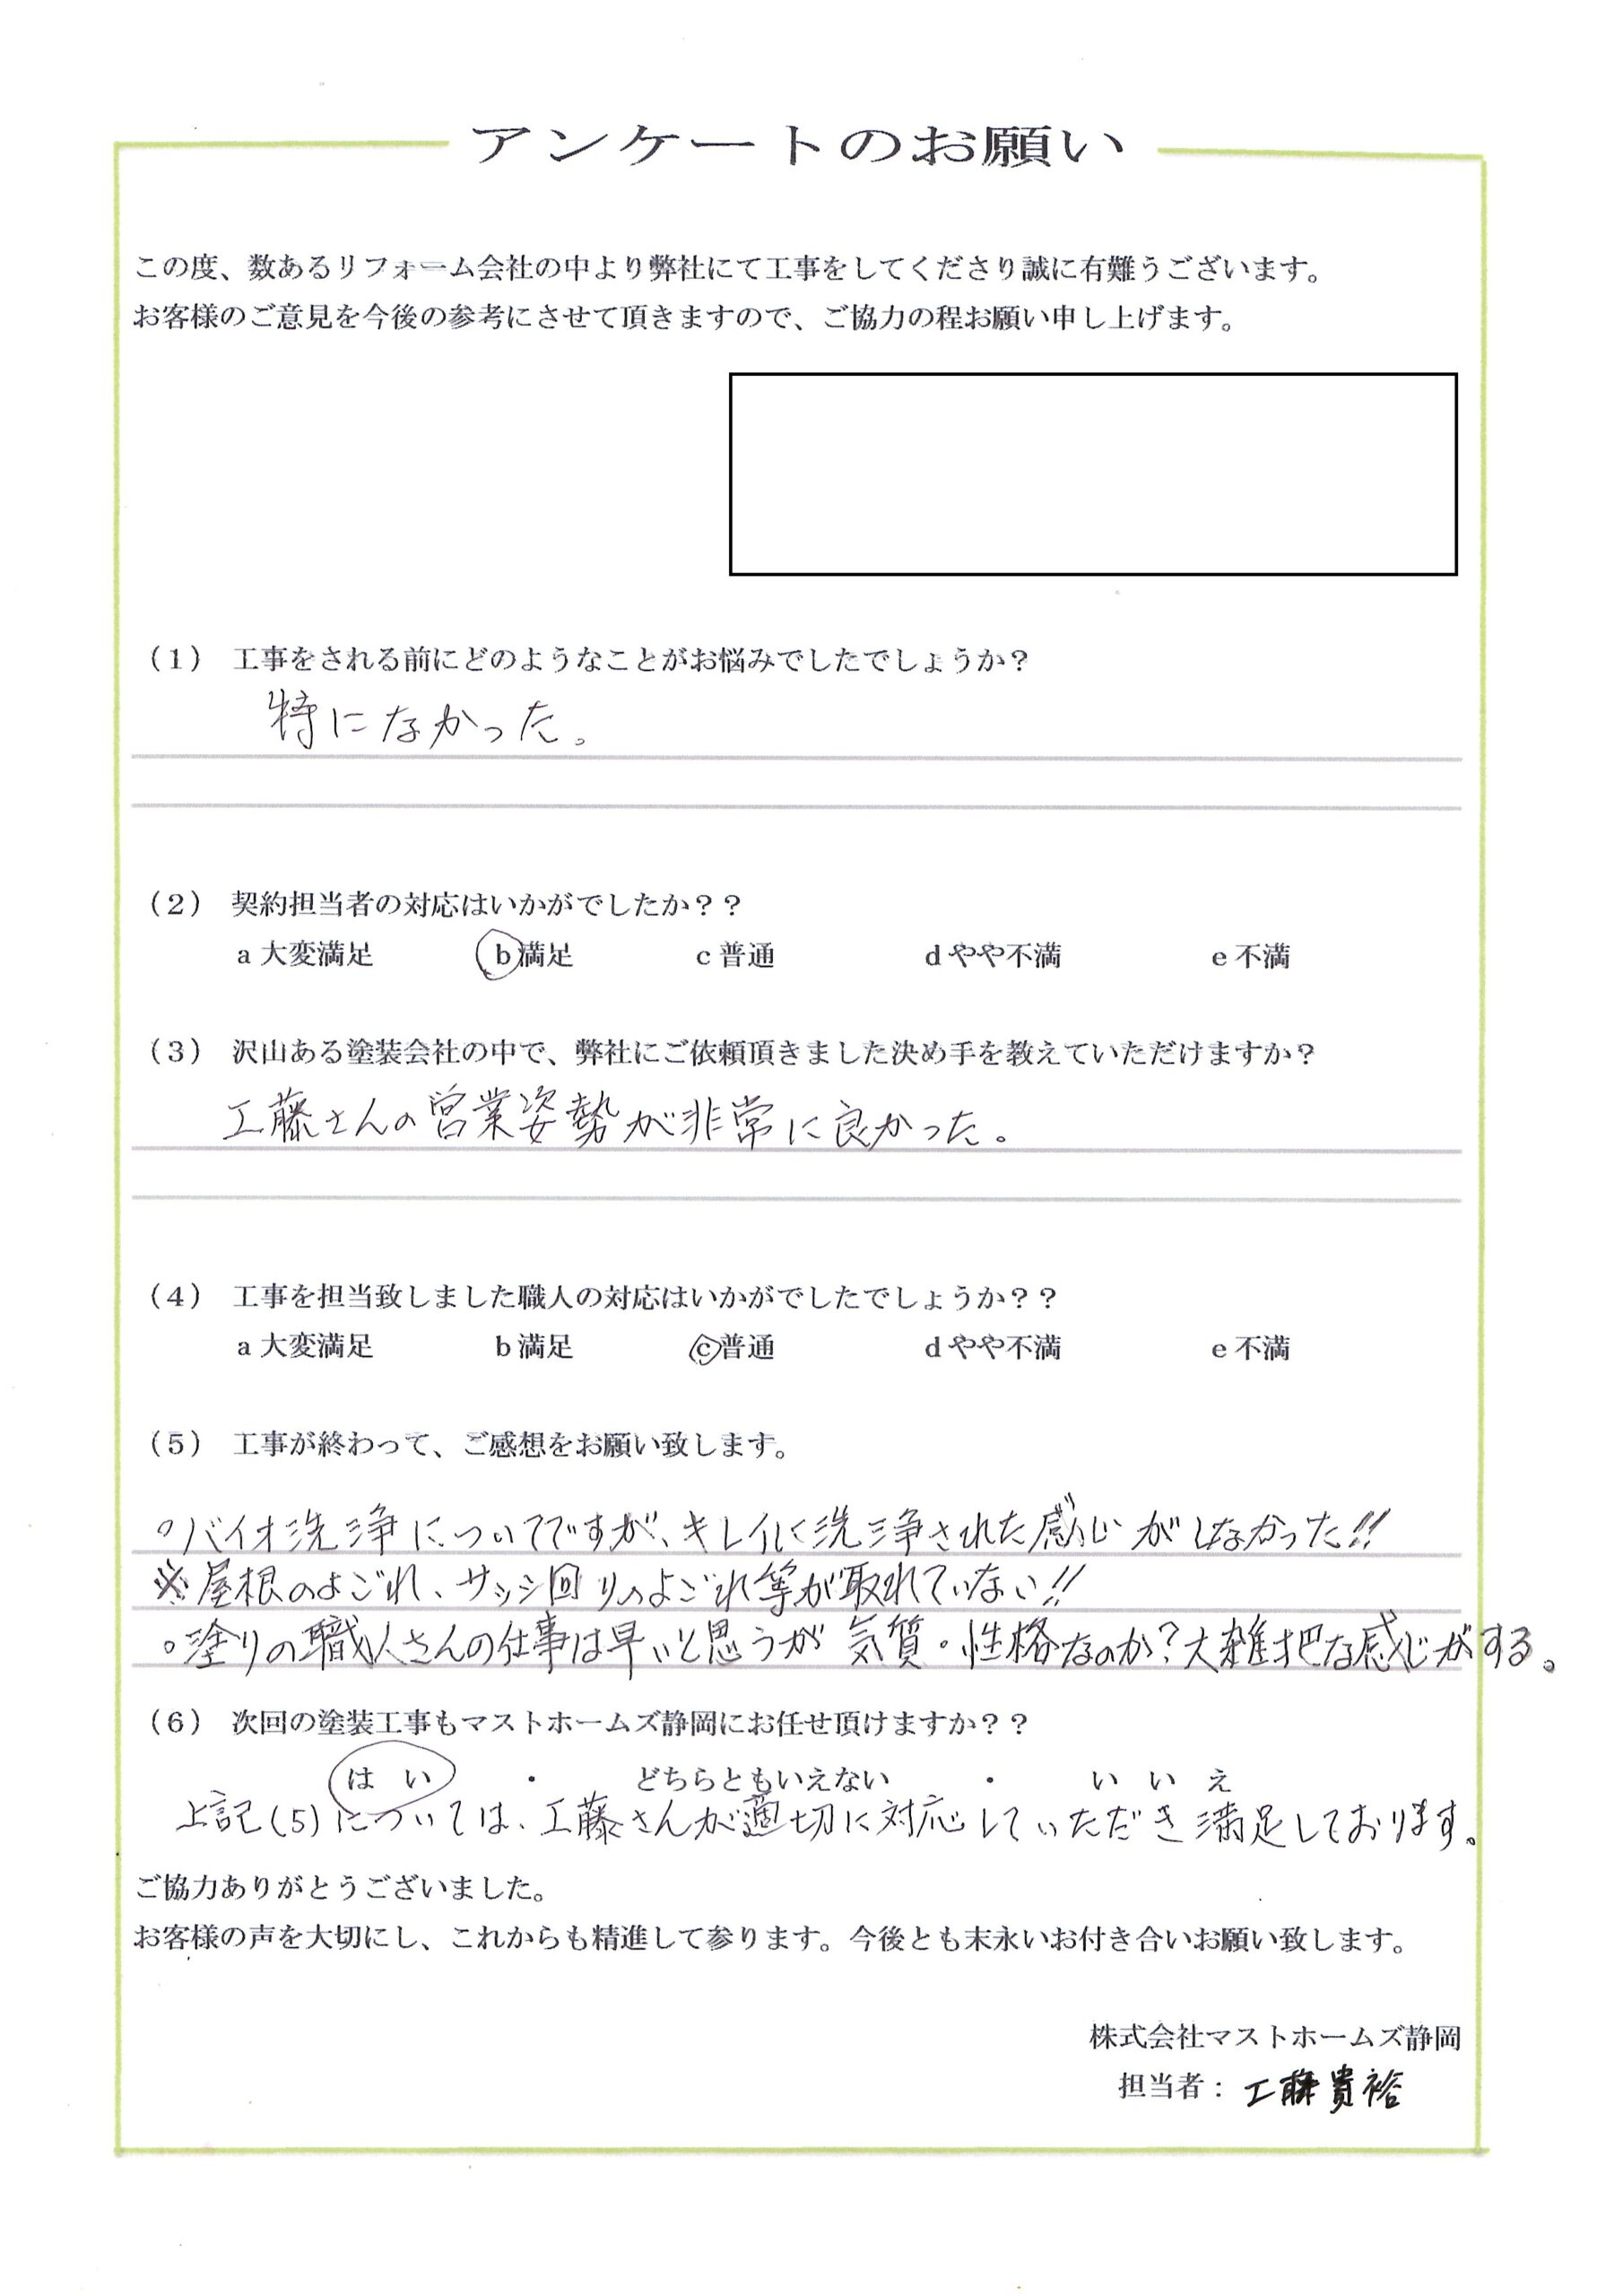 アンケートのお願い
この度、数あるリフォーム会社の中より弊社にて工事をしてくださり誠に有難うございます。
お客様のご意見を今後の参考にさせて頂きますので、ご協力の程お願い申し上げます。
(1) 工事をされる前にどのようなことがお悩みでしたでしょうか？
特になかった。
(2) 契約担当者の対応はいかがでしたか？？
a 大変満足 b 満足 c 普通 d やや不満 e 不満
(3) 沢山ある塗装会社の中で、弊社にご依頼頂きました決め手を教えていただけますか？
工藤さんの営業姿勢が非常に良かった。
(4) 工事を担当致しました職人の対応はいかがでしたでしょうか？？
a 大変満足 b 満足 c 普通 d やや不満 e 不満
(5) 工事が終わって、ご感想をお願い致します。
○バイオ洗浄についてですが、キレイに洗浄された感じがしなかった!!
※屋根のよごれ、サッシ回りのよごれ等が取れていない!!
○塗りの職人さんの仕事は早いと思うが気質・性格なのか？大雑把な感じがする。
(6) 次回の塗装工事もマストホームズ静岡にお任せ頂けますか？？
はい ・ どちらともいえない ・ いいえ
上記(5)については、工藤さんが適切に対応していただき満足しております。
ご協力ありがとうございました。
お客様の声を大切にし、これからも精進して参ります。今後とも末永いお付き合いお願い致します。
株式会社マストホームズ静岡
担当者：工藤貴裕